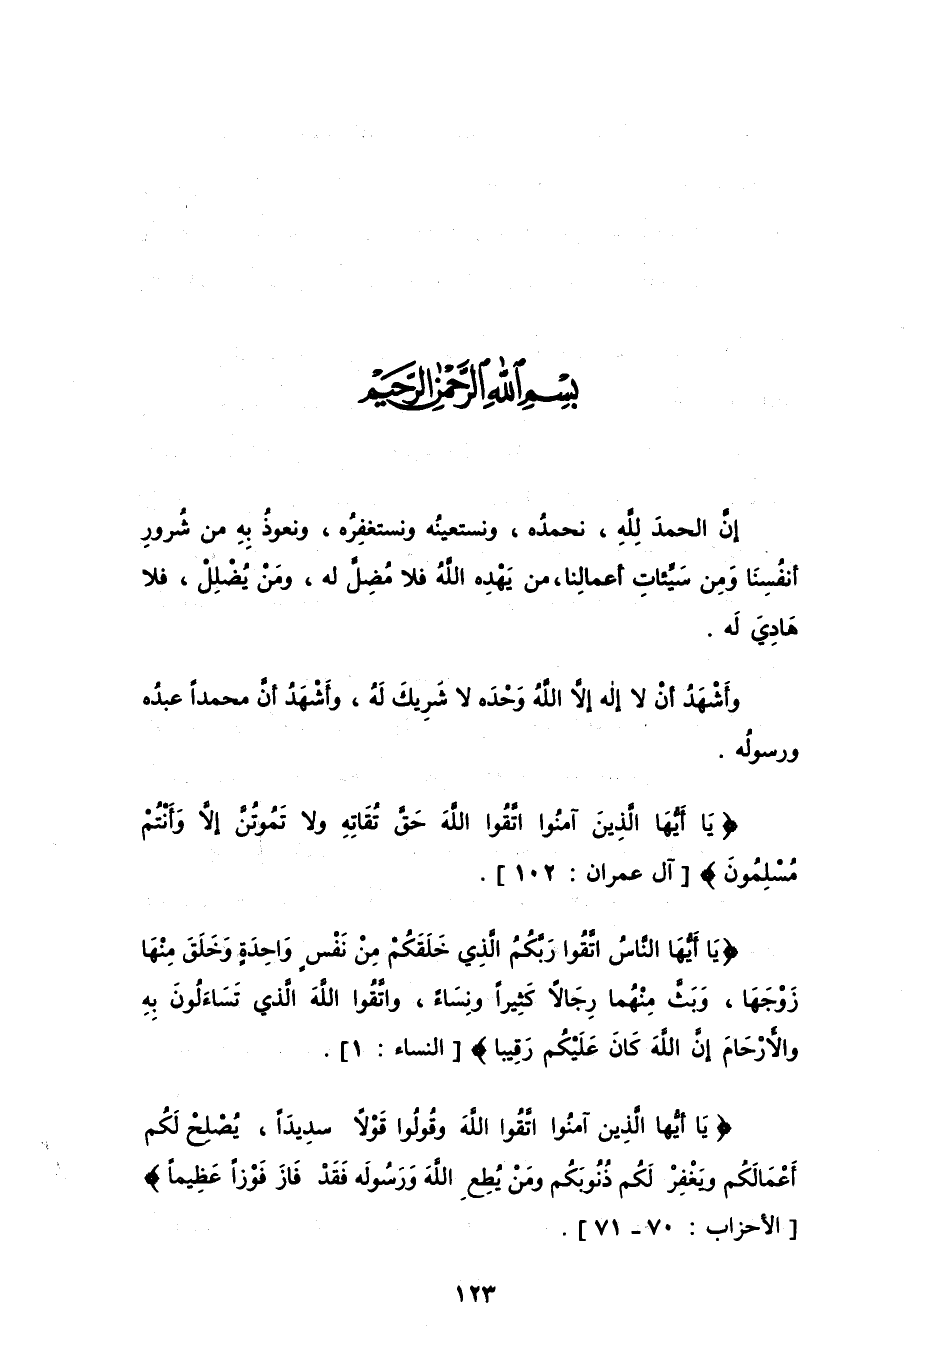 بِسْمِ ٱللَّهِ ٱلرَّحْمَٰنِ ٱلرَّحِيمِ
إنَّ الحمدَ لِلَّهِ ، نحمدُه ، ونستعينُه ونستغفِرُه ، ونعوذُ بِهِ من شُرورِ
أنفُسِنَا وَمِن سَيِّئاتِ أعمالِنا، من يَهْدِه اللَّهُ فلا مُضِلَّ له ، ومَنْ يُضْلِلْ ، فلا
هَادِيَ لَه .
وأَشْهَدُ أنْ لا إلٰه إلَّا اللَّهُ وَحْدَه لا شَرِيكَ لَهُ ، وأَشْهَدُ أنَّ محمداً عبدُه
ورسولُه .
﴿ يَا أَيُّهَا الَّذِينَ آمنُوا اتَّقُوا اللَّهَ حَقَّ تُقَاتِهِ ولا تَمُوتُنَّ إلَّا وَأَنْتُمْ
مُسْلِمُونَ ﴾ [ آل عمران : ١٠٢ ] .
﴿يَا أَيُّهَا النَّاسُ اتَّقُوا رَبَّكُمُ الَّذِي خَلَقَكُمْ مِنْ نَفْسٍ وَاحِدَةٍ وَخَلَقَ مِنْهَا
زَوْجَهَا ، وَبَثَّ مِنْهُما رِجَالاً كَثِيراً ونِسَاءً ، واتَّقُوا اللَّهَ الَّذي تَسَاءَلُونَ بِهِ
والأَرْحَامَ إنَّ اللَّهَ كَانَ عَلَيْكُم رَقِيبا ﴾ [ النساء : ١] .
﴿ يَا أيُّها الَّذِين آمنُوا اتَّقُوا اللَّهَ وقُولُوا قَوْلاً سديدَاً ، يُصْلِحْ لَكُم
أَعْمَالَكُم ويَغْفِرْ لَكُم ذُنُوبَكُم ومَنْ يُطِعِ اللَّهَ وَرَسُولَه فَقَدْ فَازَ فَوْزاً عَظِيماً ﴾
[ الأحزاب : ٧٠ ـ ٧١ ] .
١٢٣